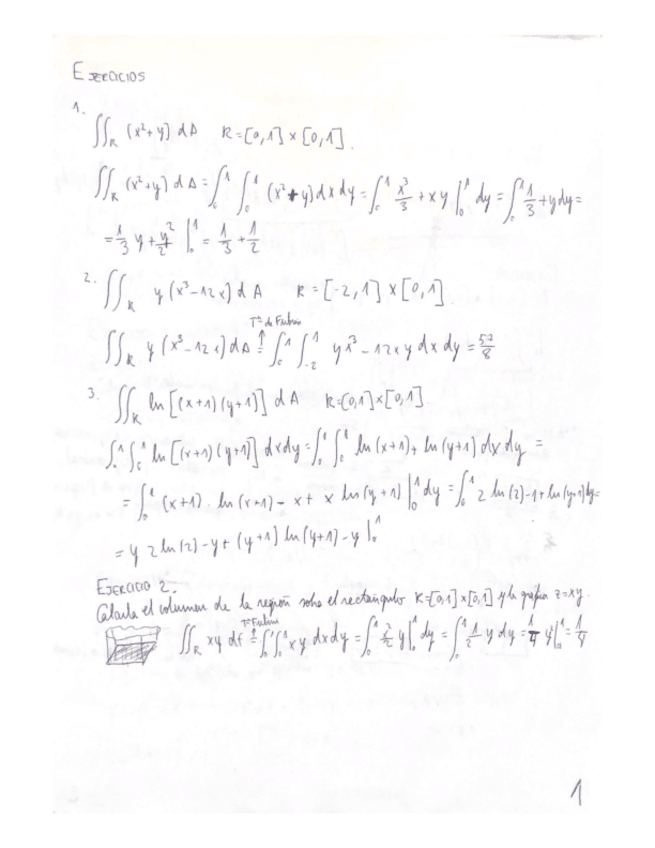 EJERCICIOS
1.
∬_R (x²+y) dA   R=[0,1]×[0,1].
∬_R (x²+y) dA = ∫_0^1 ∫_0^1 (x²+y) dx dy = ∫_0^1 x³/3 + xy |_0^1 dy = ∫_0^1 1/3 + y dy =
= 1/3 y + y²/2 |_0^1 = 1/3 + 1/2
2. ∬_R y(x³-12x) dA   R=[-2,1]×[0,1]
Tª de Fubini
∬_R y(x³-12x) dA = ∫_0^1 ∫_{-2}^1 yx³-12xy dx dy = 57/8
3. ∬_R ln[(x+1)(y+1)] dA   R=[0,1]×[0,1].
∫_0^1 ∫_0^1 ln[(x+1)(y+1)] dx dy = ∫_0^1 ∫_0^1 ln(x+1) + ln(y+1) dx dy =
= ∫_0^1 (x+1)·ln(x+1) - x + x ln(y+1) |_0^1 dy = ∫_0^1 2 ln(2) - 1 + ln(y+1) dy =
= y 2 ln(2) - y + (y+1) ln(y+1) - y |_0^1
EJERCICIO 2.
Calcula el volumen de la región sobre el rectángulo R=[0,1]×[0,1] y la gráfica z=xy.
Tª Fubini
∬_R xy = ∫_0^1 ∫_0^1 xy dx dy = ∫_0^1 y |_0^1 dy = ∫_0^1 1/2 y dy = 1/4 y² |_0^1 = 1/4
1